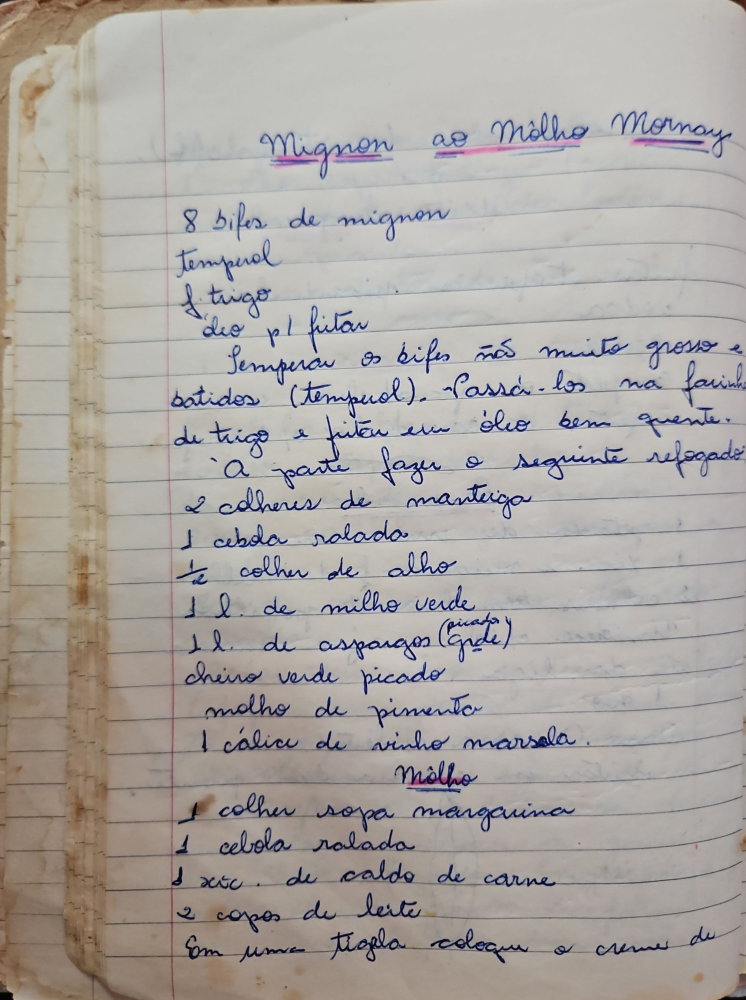 Mignon ao Môlho Mornay
8 bifes de mignon
temperol
f. trigo
óleo p/ fritar
Temperar os bifes não muito grosso e
batidos (temperol). Passá-los na farinha
de trigo e fritar em óleo bem quente.
À parte fazer o seguinte refogado
2 colheres de manteiga
1 cebola ralada
1/2 colher de alho
1 l. de milho verde
1 l. de aspargos (picados grde)
cheiro verde picado
molho de pimenta
1 cálice de vinho marsala.
Môlho
1 colher sopa margarina
1 cebola ralada
1 xíc. de caldo de carne
2 copos de leite
Em uma tigela coloque o creme de